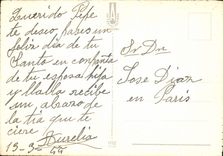 Querido Pepe
te deseo, pases un
feliz dia de tu
Santo en compañia
de tu esposa hija
y recibe
un abrazo de
la tia que te
Aurelia
13-3-44
Sr Dn
Jose Diaz
en Paris